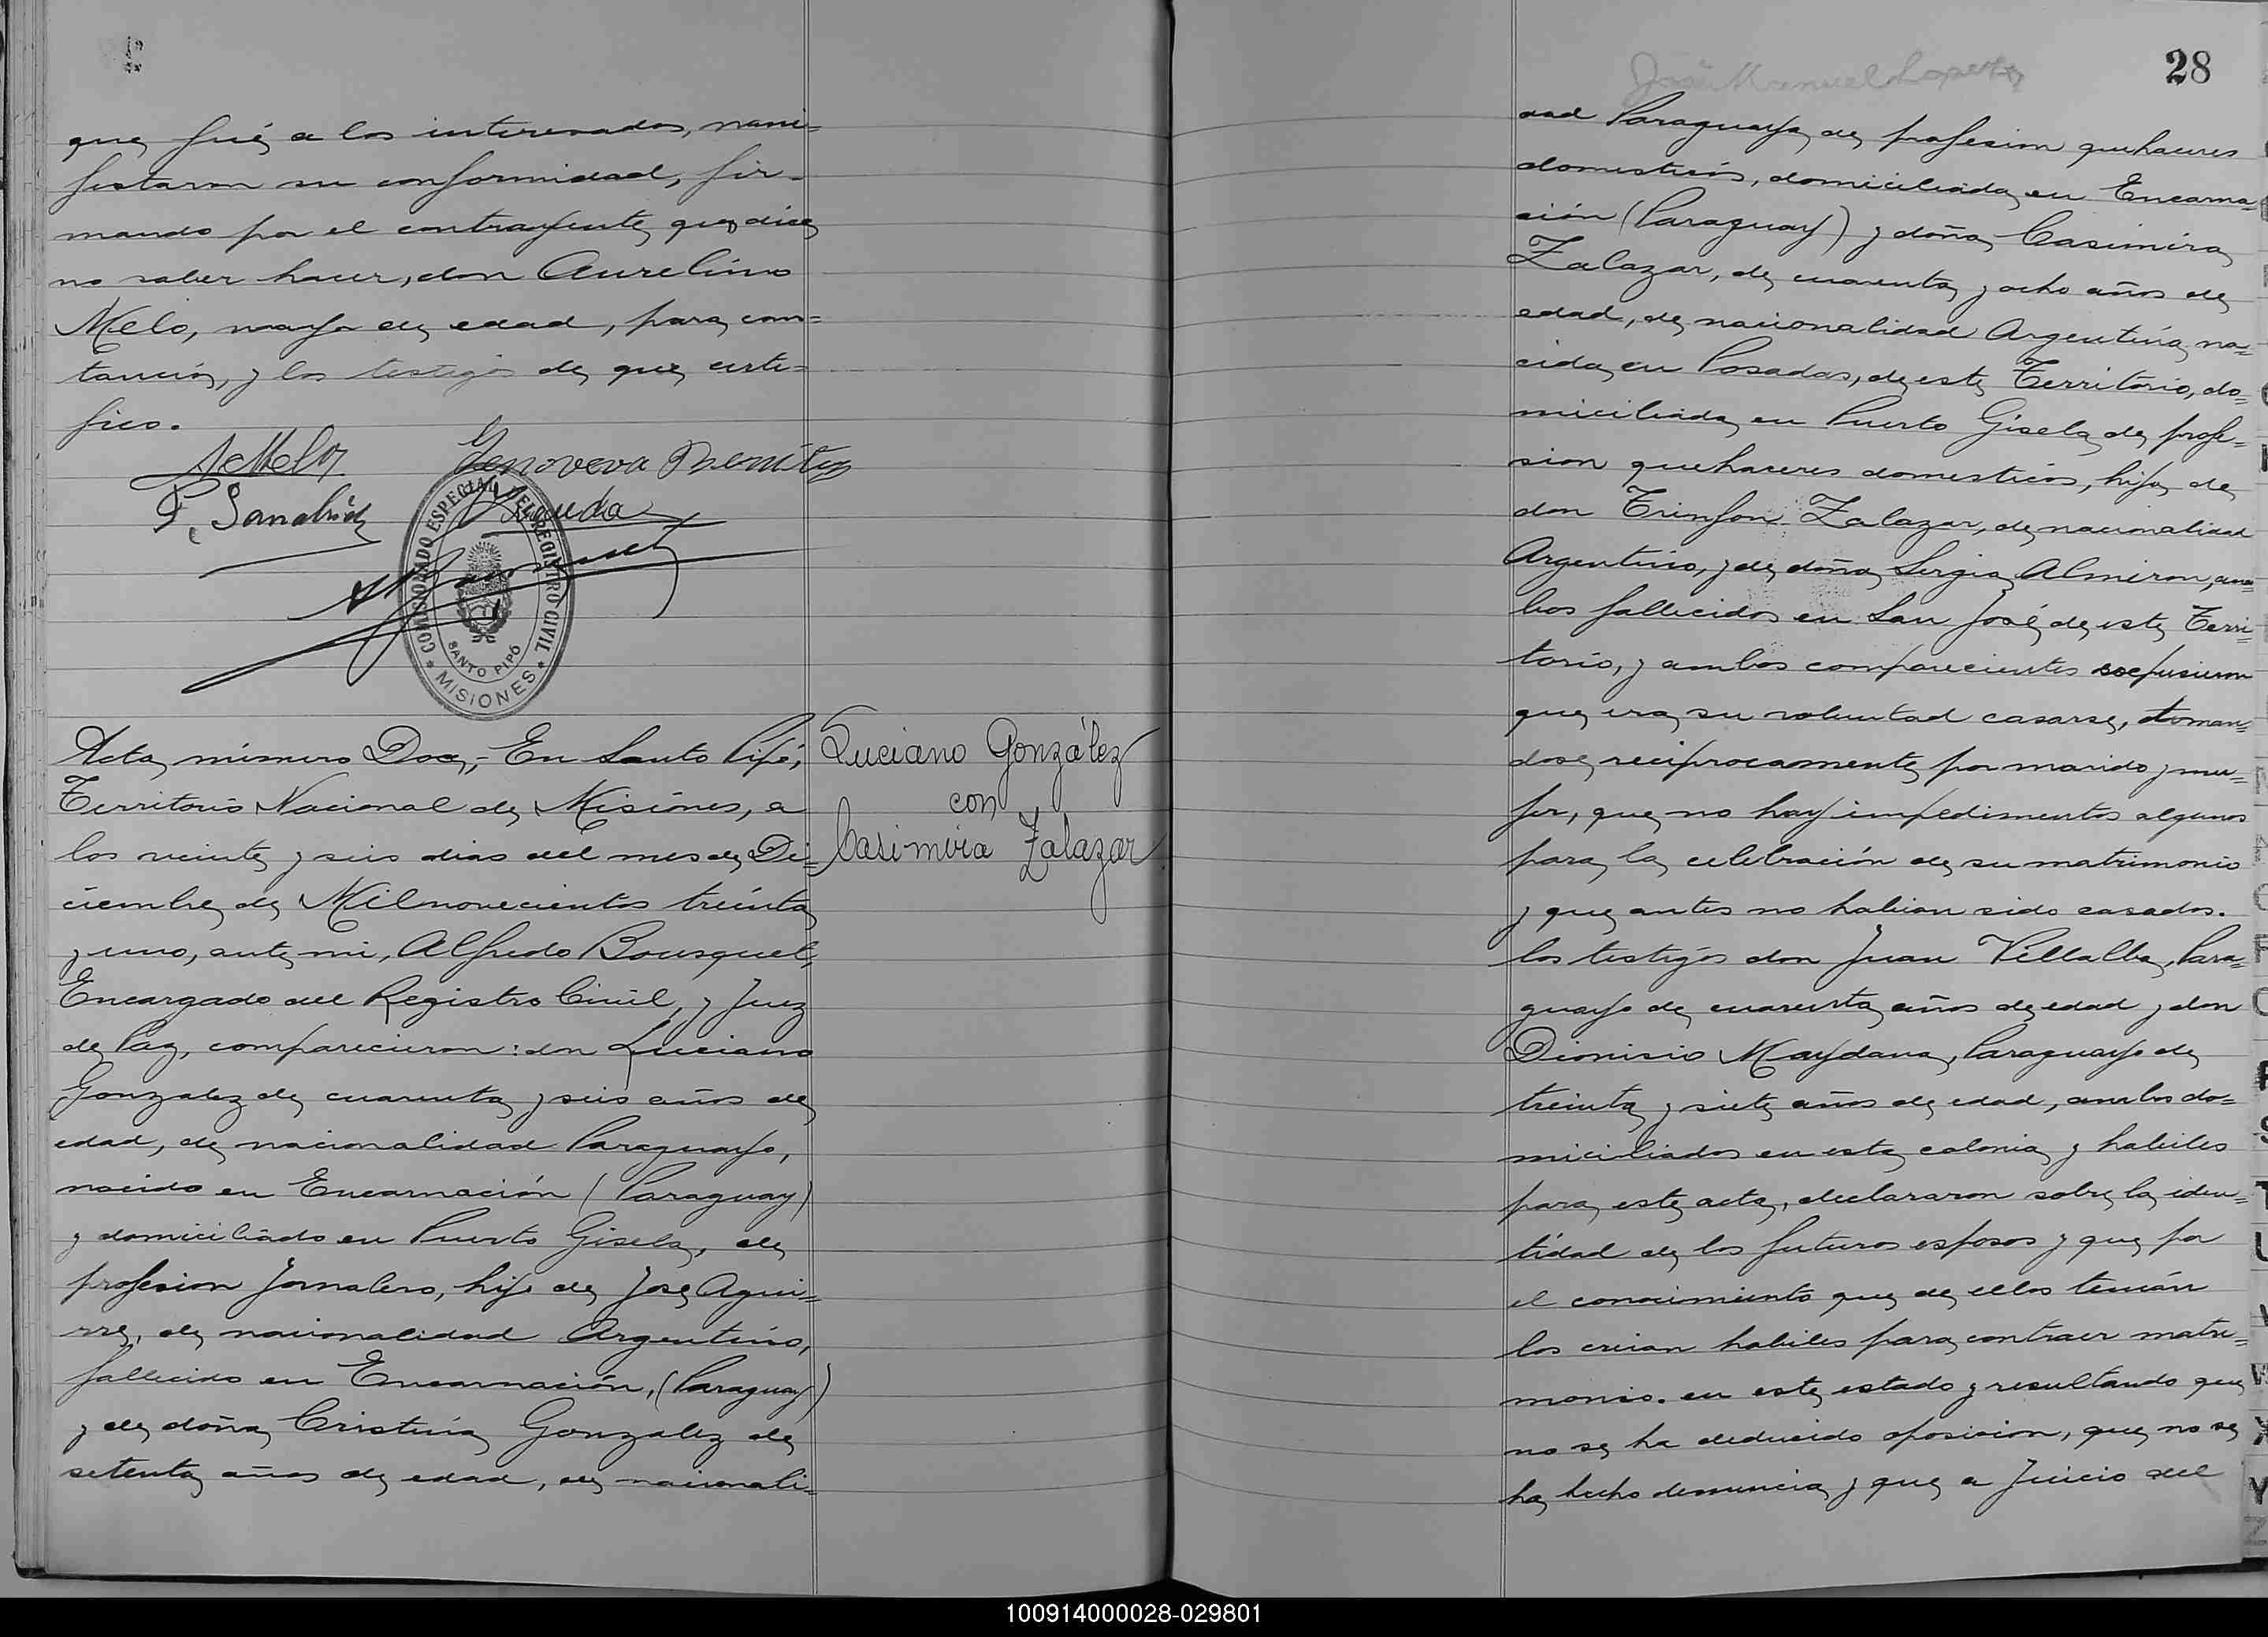 que fué a los interesados, mani=
festaron su conformidad, fir-
mando por el contrayente que dice
no saber hacer, don Aurelino
Melo, mayor de edad, para cons=
tancia, y los testigos de que certi=
fico.
AcMelo
Genoveva Benitez
P. Sanabria
COMISIONADO ESPECIAL DEL REGISTRO CIVIL
SANTO PIPÓ
* MISIONES *
Acta número Doce,- En Santo Pipó,
Territorio Nacional de Misiones, a
los veinte y seis dias del mes de Di=
ciembre de Mil novecientos treinta
y uno, ante mi, Alfredo Bousquet,
Encargado del Registro Civil, y Juez
de Paz, comparecieron: don Luciano
Gonzalez de cuarenta y seis años de
edad, de nacionalidad Paraguayo,
nacido en Encarnación (Paraguay)
y domiciliado en Puerto Gisela, de
profesion Jornalero, hijo de José Agui=
rre, de nacionalidad Argentino,
fallecido en Encarnación, (Paraguay)
y de doña Cristina Gonzalez de
setenta años de edad, de nacionali=
Luciano González
con
Casimira Zalazar
José Manuel Lopez
28
dad Paraguaya, de profesion quehaceres
domesticos, domiciliada en Encarna=
ción (Paraguay) y doña Casimira
Zalazar, de cuarenta y ocho años de
edad, de nacionalidad Argentina, na=
cida en Posadas, de este Territorio, do=
miciliada en Puerto Gisela de profe=
sion quehaceres domesticos, hija de
don Trinfon Zalazar, de nacionalidad
Argentino, y de doña Sergia Almiron, am=
bos fallecidos en San José de este Terri=
torio, y ambos comparecientes expusieron
que era su voluntad casarse, toman=
dose reciprocamente por marido y mu=
jer, que no hay impedimentos algunos
para la celebración de su matrimonio
y que antes no habian sido casados.
los testigos don Juan Villalba, Para=
guayo de cuarenta años de edad y don
Dionisio Maydana, Paraguayo de
treinta y siete años de edad, ambos do=
miciliados en esta colonia y habiles
para este acto, declararon sobre la iden=
tidad de los futuros esposos y que por
el conocimiento que de ellos tenián
los creian habiles para contraer matri=
monio. en este estado y resultando que
no se ha deducido oposicion, que no se
ha hecho denuncia y que a Juicio del
100914000028-029801